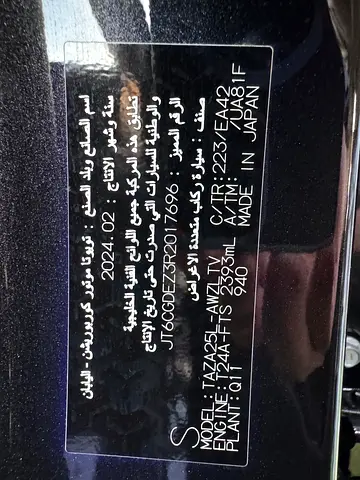 اسم الصانع وبلد الصنع : تويوتا موتور كوربوريشن - اليابان
سنة وشهر الانتاج : 2024.02
تطابق هذه المركبة جميع اللوائح الفنية الخليجية
والوطنية للسيارات التي صدرت حتى تاريخ الانتاج
الرقم المميز : JT6CGDEZ3R2017696
صنف : سيارة ركاب متعددة الاغراض
S
MODEL:TAZA25L-AWZLTV C/TR:223/EA42
ENGINE:T24A-FTS 2393mL A/TM: /UA81F
PLANT:Q11 940 MADE IN JAPAN